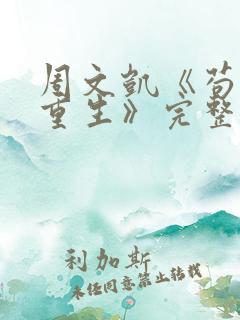 周文凯《苟
重生》完整
利加斯
未经同意禁止转载